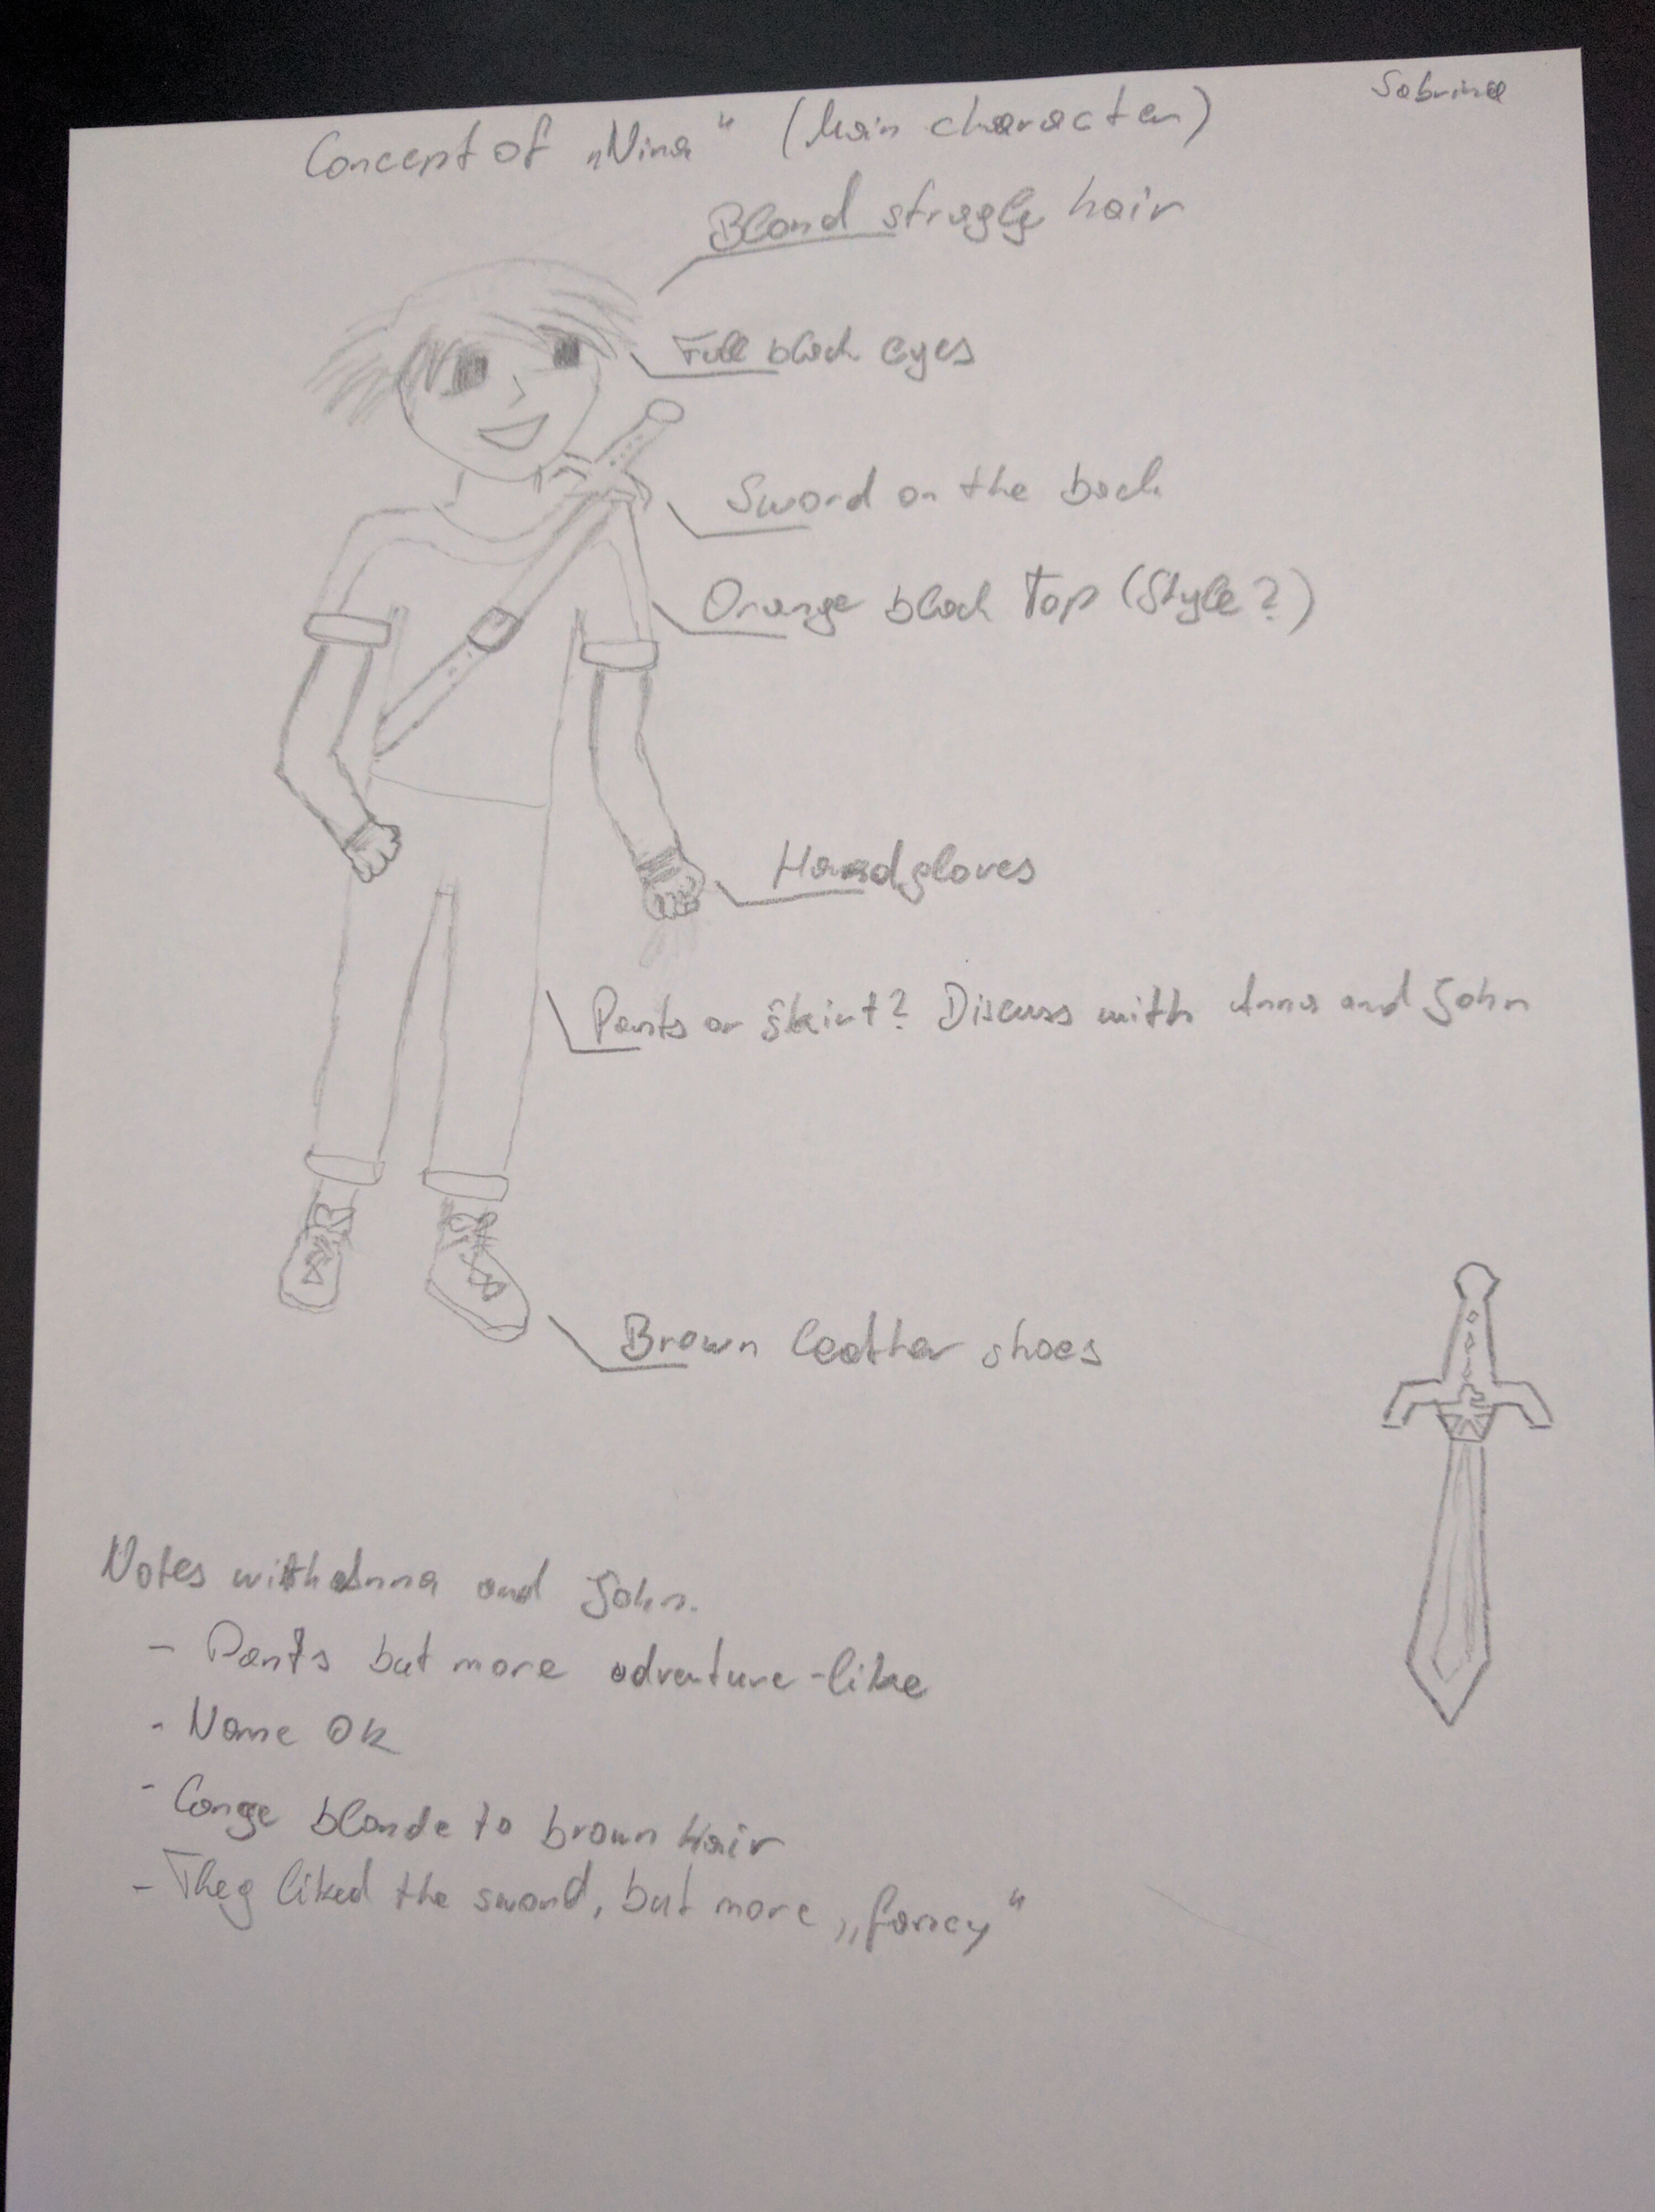 Sabrina
Concept of „Nina“ (Main character)
Blond straggly hair
Full black eyes
Sword on the back
Orange black Top (Style?)
Handgloves
Pants or Skirt? Discuss with Anna and John
Brown leather shoes
Notes with Anna and John.
- Pants but more adventure-like
- Name OK
- Cange blonde to brown Hair
- They liked the sword, but more „fancy“